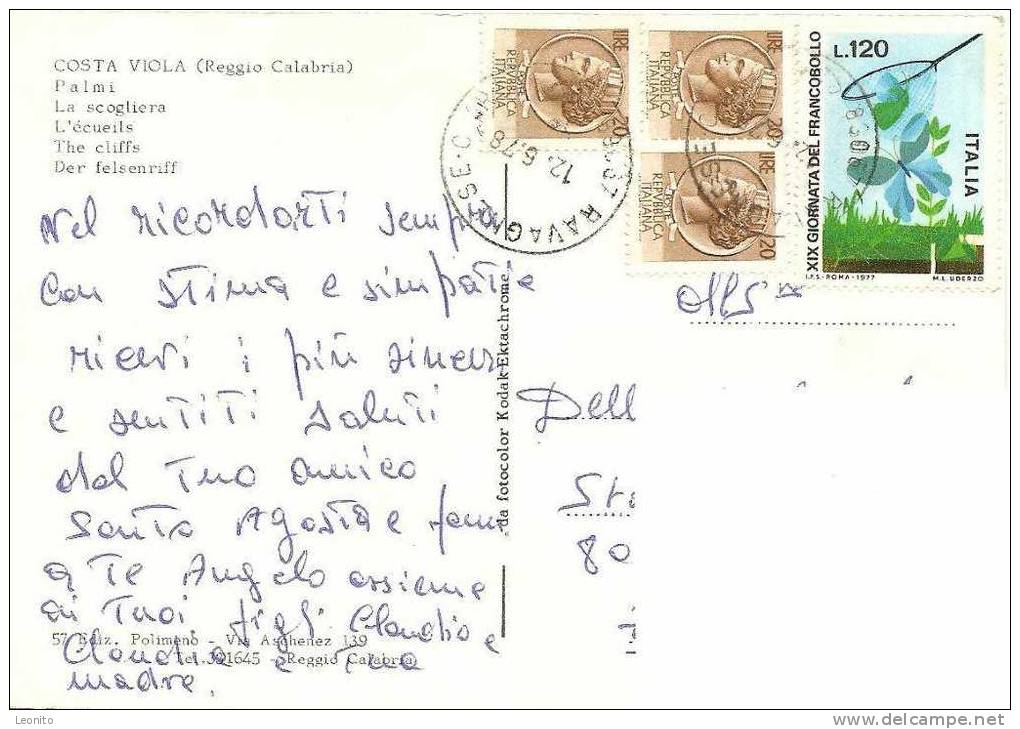 COSTA VIOLA (Reggio Calabria)
Palmi
La scogliera
L'écueils
The cliffs
Der felsenriff
Nel ricordarti sempre
con stima e simpatia
ricevi i più sinceri
e sentiti saluti
dal Tuo amico
Santo Agosta e fam.
a Te Angelo assieme
ai Tuoi figli Claudio e
Claudia e Tua
madre.
57 Ediz. Polimeno - Via Aschenez 139
Tel. 391645 - Reggio Calabria
da fotocolor Kodak Ektachrome
LIRE 20
POSTE
REPVBBLICA
ITALIANA
LIRE 20
POSTE
REPVBBLICA
ITALIANA
LIRE 20
POSTE
REPVBBLICA
ITALIANA
RAVAGNESE
12.6.78
L.120
XIX GIORNATA DEL FRANCOBOLLO
ITALIA
I.P.S.-ROMA-1977
M.L. UDERZO
Dell
80
Leonito
www.delcampe.net